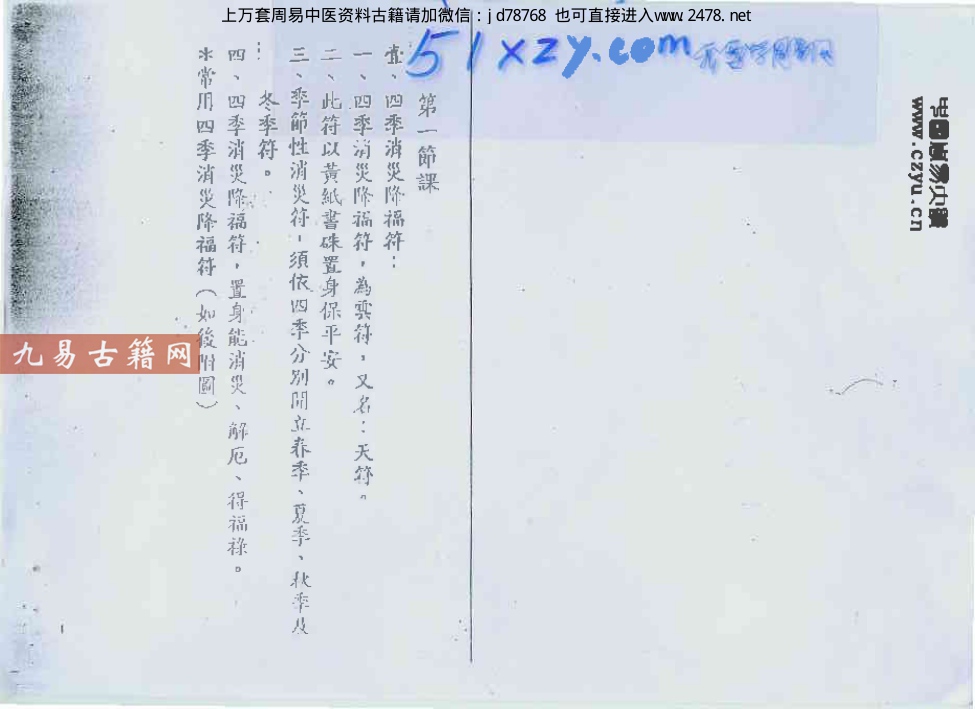 上万套周易中医资料古籍请加微信：jd78768 也可直接进入www.2478.net
51xzy.com
www.czyu.cn
第一節課
壹、四季消災降福符：
一、四季消災降福符，為雲符，又名：天符。
二、此符以黃紙書硃置身保平安。
三、季節性消災符，須依四季分別開立春季、夏季、秋季及
冬季符。
四、四季消災降福符，置身能消災、解厄、得福祿。
＊常用四季消災降福符（如後附圖）
九易古籍网